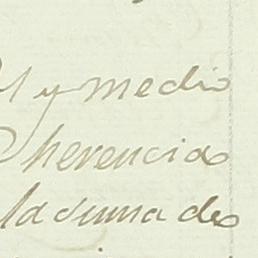 y medio
herencia
la suma de